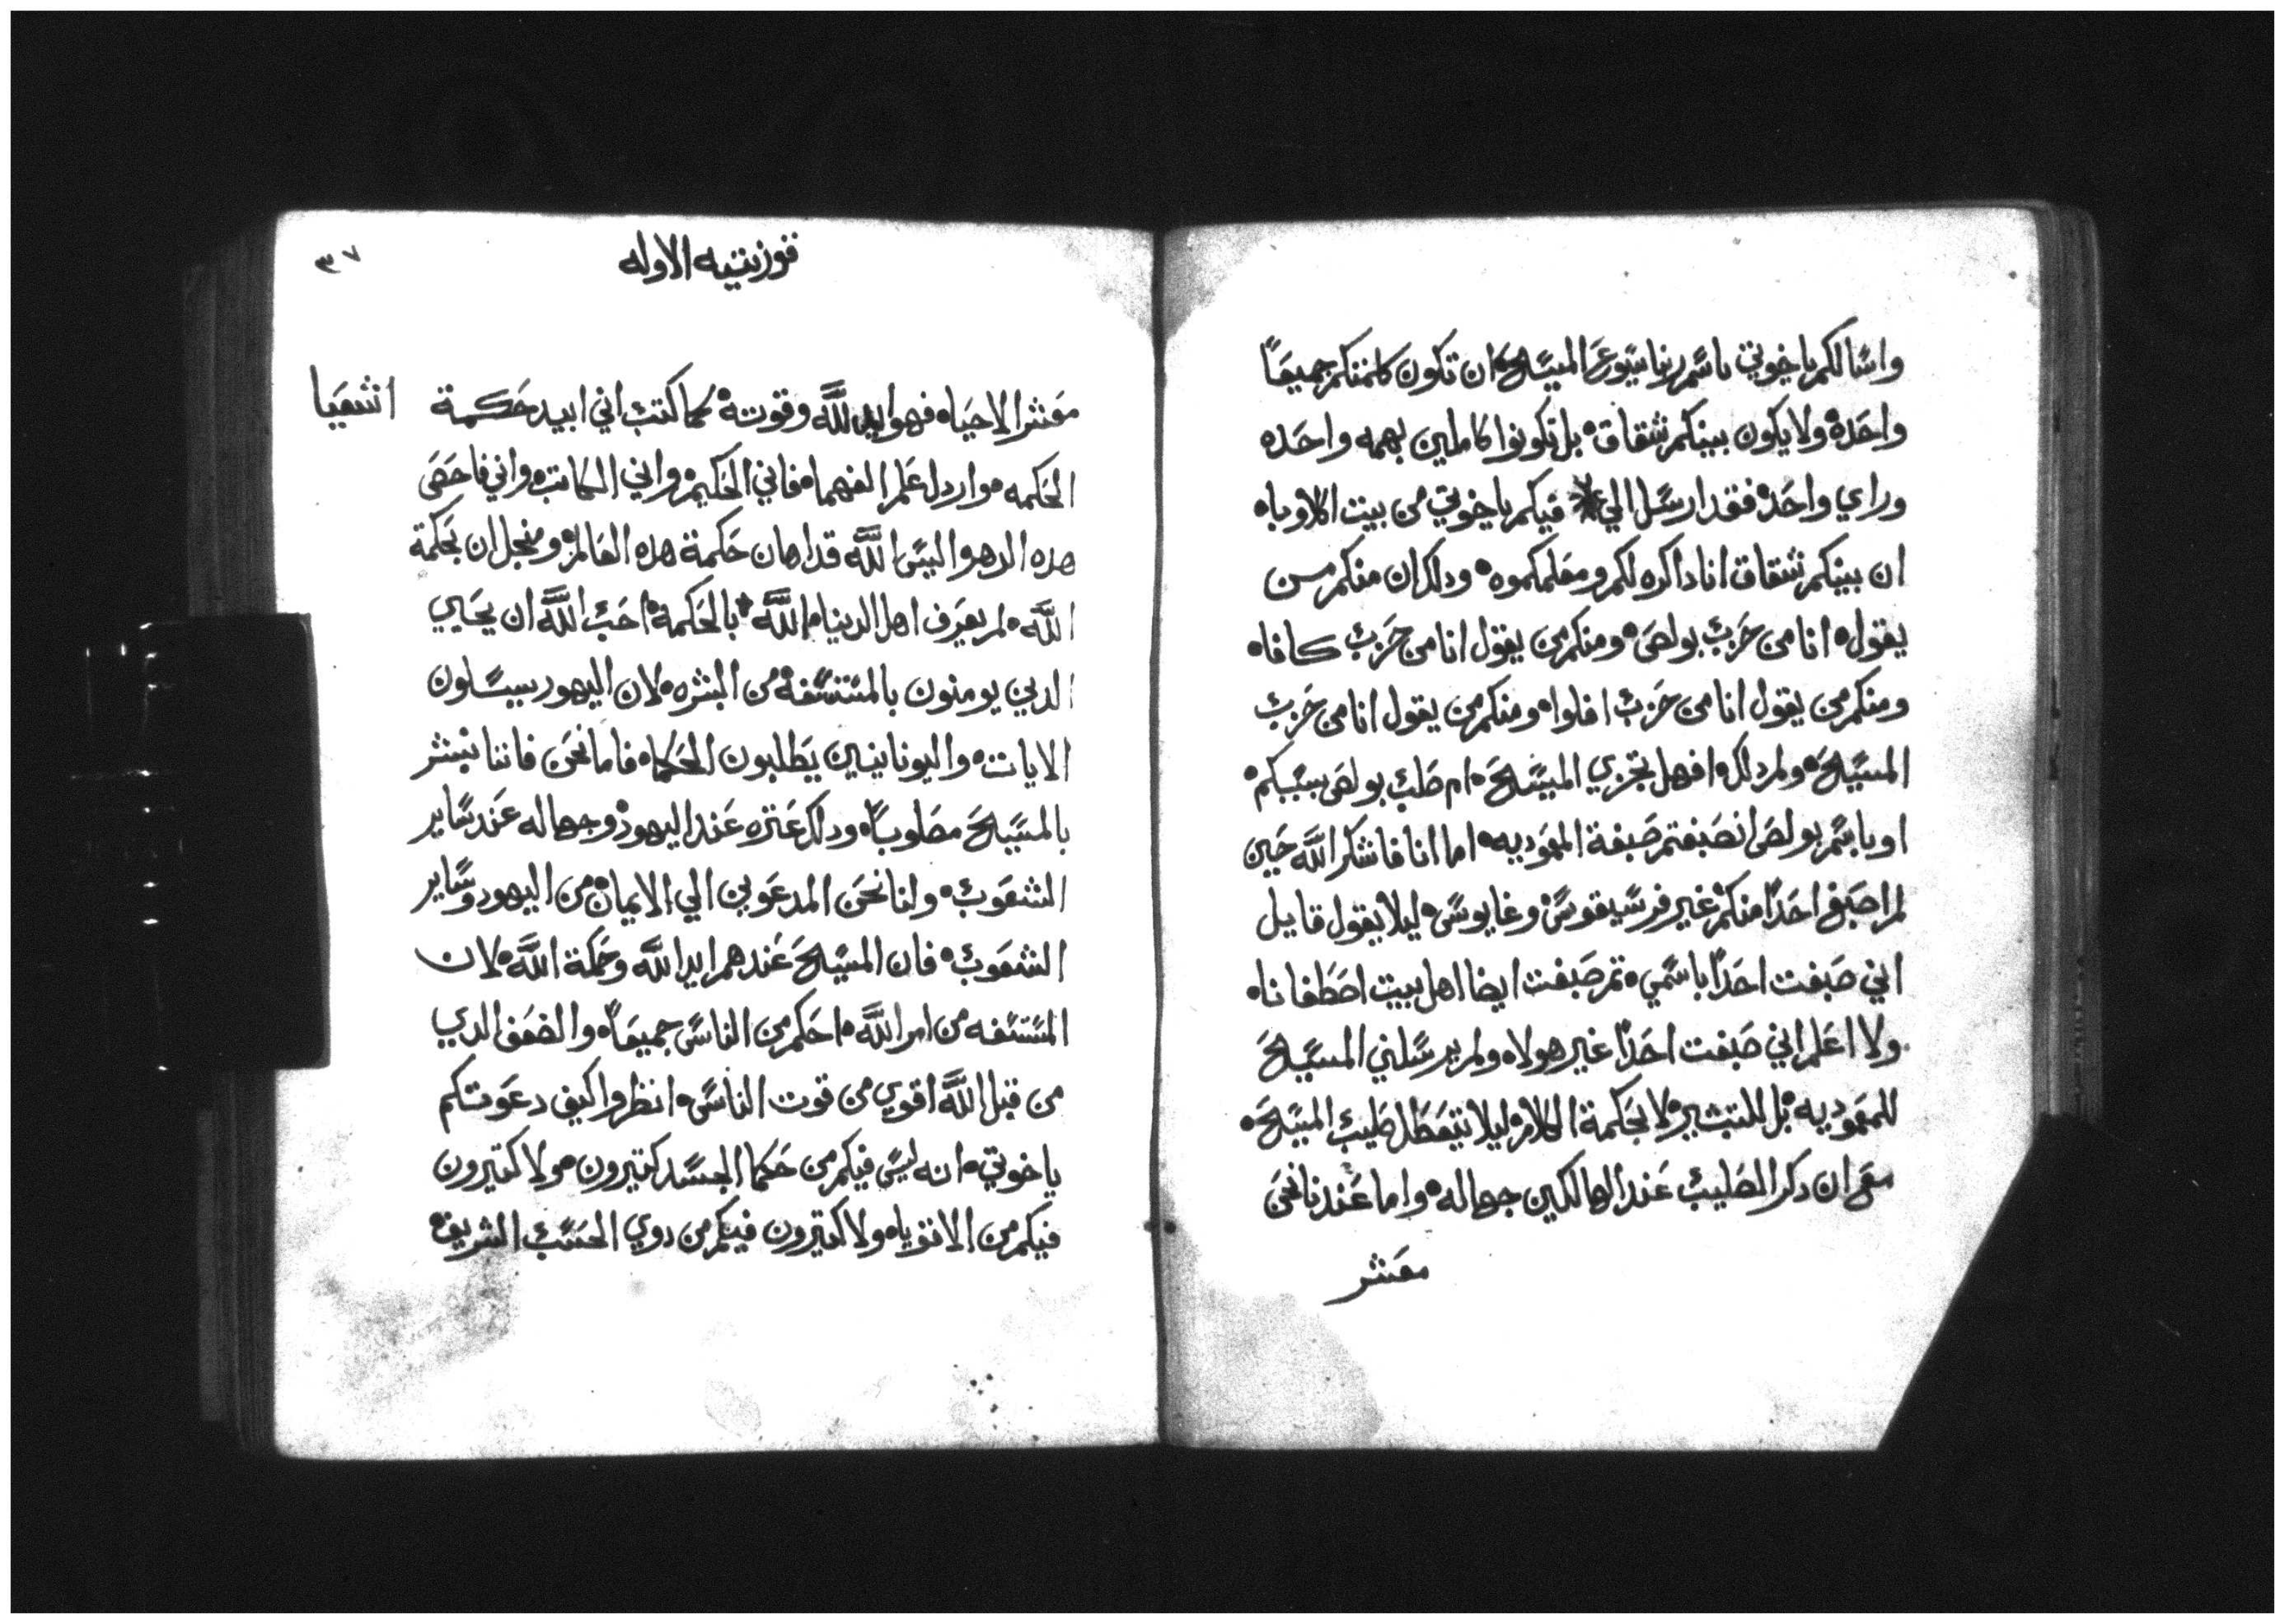 واسالكم ياخوتي باسم ربنا يسوع المسيح ان تكون كلمتكم جميعاً
واحده ولا يكون بينكم شقاق بل تكونوا كاملين بهمه واحده
وراي واحده فقد ارسل الي فيكم ياخوتي من بيت اكلاوباه
ان بينكم شقاق انا داكره لكم ومعلمكموه ودلك ان منكم من
يقول انا من حزب بولص ومنكم من يقول انا من حزب كافاه
ومنكم من يقول انا من حزب افلوا ومنكم من يقول انا من حزب
المسيح ولم دلك افهل تجزي المسيح ام صلب بولص بسببكم
او باسم بولص انصبغتم صبغة المعوديه اما انا فاشكر الله حين
لم اصبغ احداً منكم غير فرسيقوس وغايوس ليلا يقول قايل
اني صبغت احداً باسمي تم صبغت ايضا اهل بيت اصطفاناه
ولا اعلم اني صبغت احداً غير هولاه ولم يرسلني المسيح
للمعموديه بل للتبشير لا بحكمة الكلام ليلا يتعطل صليب المسيح
مع ان دكر الصليب عند الهالكين جهاله واما عندنا نحن
معشر
قورنتيه الاوله
٣٧
معشر الاحياه فهو ايد الله وقوته كما كتب اني ابيد حكمة
اشعيا
الحكمه واردل علم الفهما فاني الحكيم واني الكاتب واني فاحص
هده الدهر اليس الله قد اهان حكمة هده العالم ومنجل ان بحكمة
الله لم يعرف اهل الدنيا الله بالحكمة احب الله ان يحايي
الدين يومنون بالمستسفه من البشره لان اليهود يسلون
الايات واليونانيين يطلبون الحكماه فاما نحن فاننا نبشر
بالمسيح مصلوباً ودلك عتره عند اليهود وجهاله عند ساير
الشعوب ولنا نحن المدعوين الي الايمان من اليهود وساير
الشعوب فان المسيح عندهم ايد الله وحكمة الله لان
المستسفه من امر الله احكم من الناس جميعاً والضعف الدي
من قبل الله اقوي من قوت الناس انظروا كيف دعوتكم
ياخوتي انه ليس فيكم من حكما الجسد كتيرون ولا كتيرون
فيكم من الاقوياه ولا كتيرون فيكم من دوي الحسب الشريف